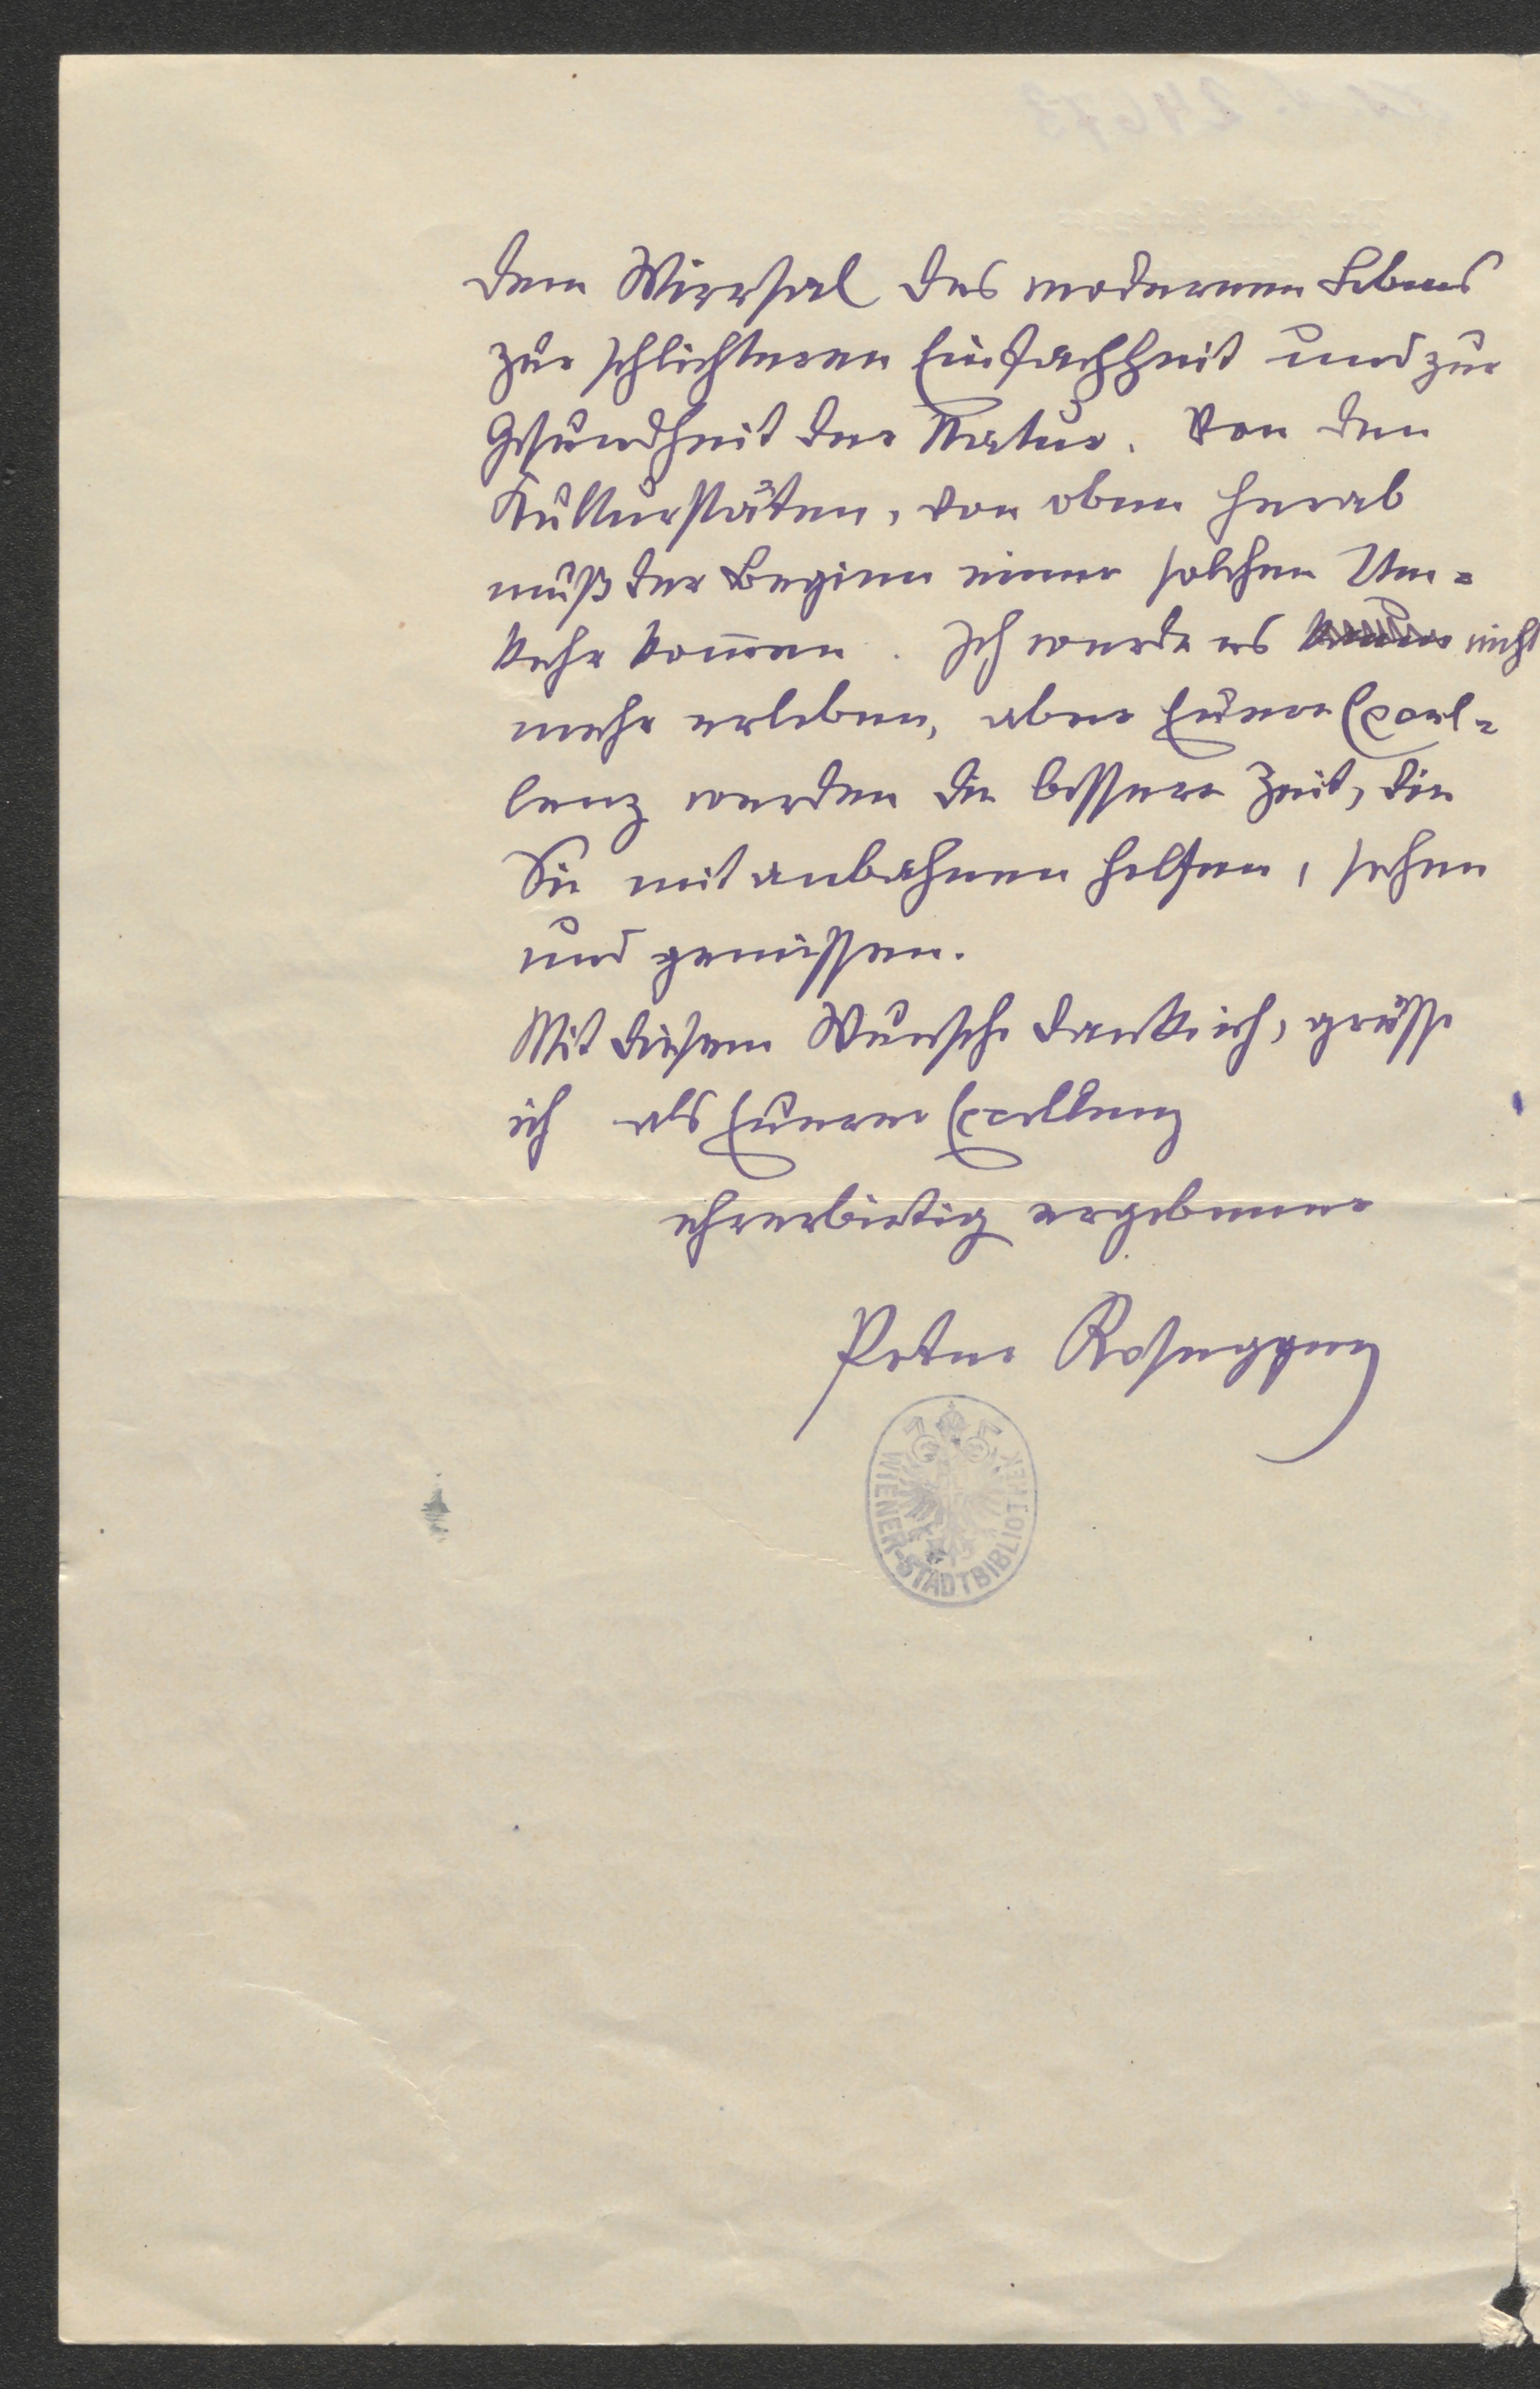 dem Wirrsal des modernen Lebens
zur schlichteren Einfachheit und zur
Gesundheit der Natur. Von den
Kulturstäten, von oben herab
muß der Beginn einer solchen Um=
kehr kom̄en. Ich werde es nicht
mehr erleben, aber Euere Excel=
lenz werden die bessere Zeit, die
Sie mit anbahnen helfen, sehen
und genissen.
Mit diesem Wunsche dank ich, grüsse
ich als Euerer Excellenz
ehrerbietig ergebener
Peter Rosegger
WIENER-STADTBIBLIOTHEK